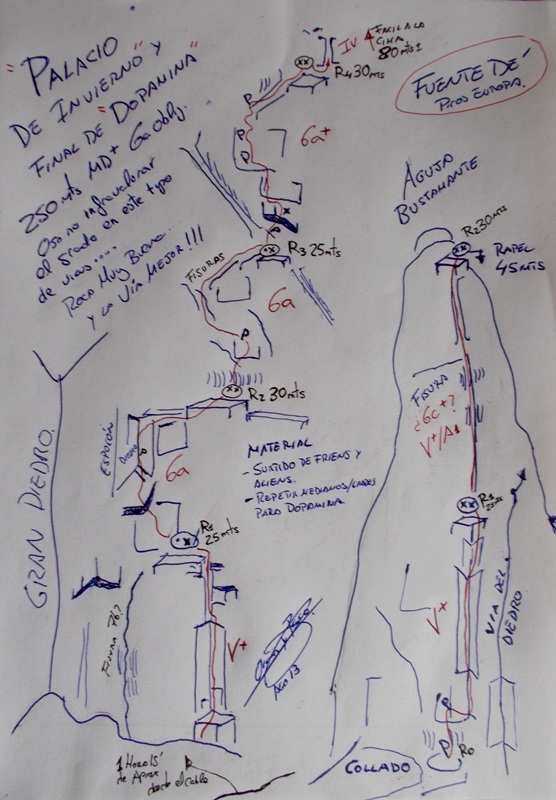 "PALACIO
DE INVIERNO" Y
FINAL DE "DOPAMINA"
250 mts MD+ 6a oblig.
Ojo no infravalorar
el grado en este tipo
de vias....
Roca Muy Buena...
y la Vía MEJOR!!!
IV FACIL A LA
CIMA
80 mts ±
R4 30 mts
FUENTE DÉ
PICOS EUROPA.
6a+
P
P
P
R3 25 mts
FISURAS
6a
P
R2 30 mts
ESPOLÓN
DIEDRO
6a
P
R1
25 mts
MATERIAL
- SURTIDO DE FRIENS Y
ALIENS.
- REPETIR MEDIANOS/GRANDES
PARA DOPAMINA.
GRAN DIEDRO.
FISURA
V+
AGO 13
1 Hora 15'
de Aprox
desde el cable
AGUJA
BUSTAMANTE
R2 30 mts
RAPEL
45 MTS
FISURA
¿6c+?
V+/A1
R1
25 mts
V+
VIA DEL
DIEDRO
P
P
R0
COLLADO